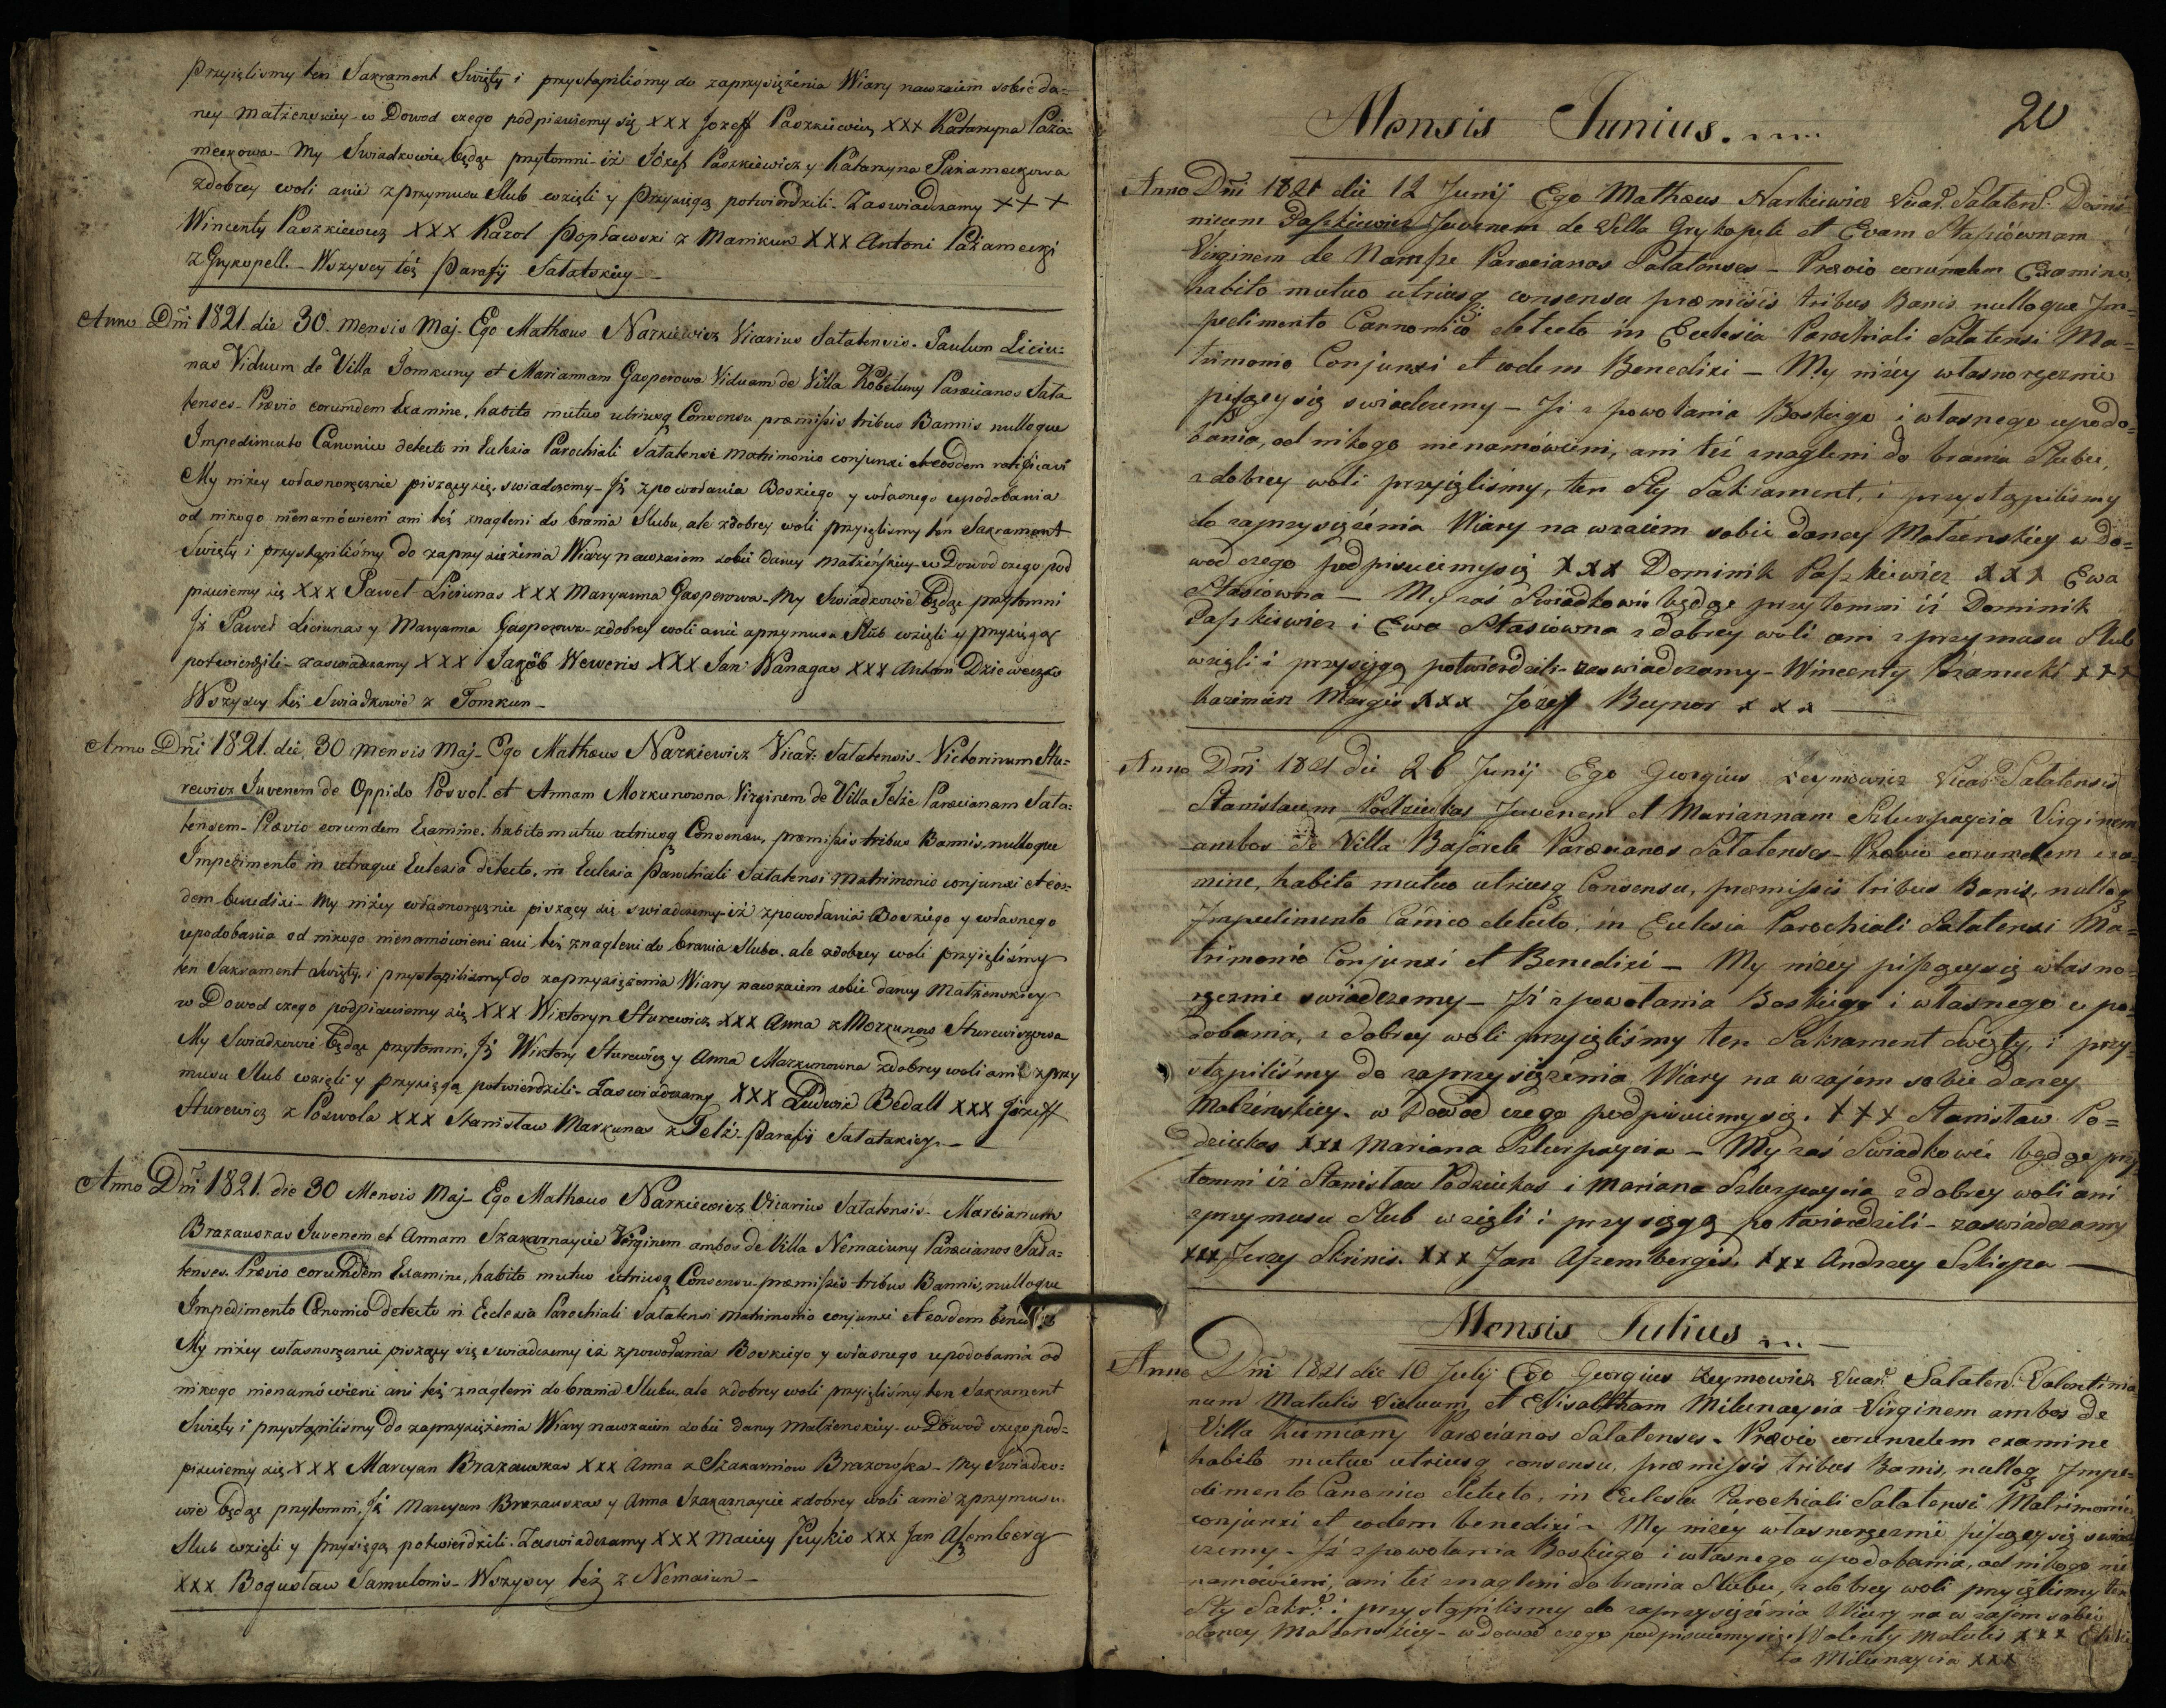 Przyięlismy ten Sakrament Swięty i przystąpiliśmy do zaprzysiężenia Wiary nawzaiem sobie da=
ney Małżenskiey w Dowod czego podpisuiemy się XXX Jozeff Paszkiewicz XXX Katarzyna Paża=
meckowa - My Swiadkowie będąc przytomni iż Józef Paszkiewicz y Katarzyna Pażameckowa
z dobrey woli anie z przymusu Slub wzięli y Przysięgą potwierdzili. Zaswiadczamy XXX
Wincenty Paszkiewicz XXX Karol Popławski z Manikun XXX Antoni Pażamecki
z Grykopell. - Wszyscy też Parafij Sałatskiey -
Anno Dñi 1821 die 30. Mensis Maj - Ego Mathæus Narkiewicz Vicarius Satatensis. Paulum Liciu=
nas Viduum de Villa Tomkuny et Mariannam Gasperowa Viduam de Villa Kobeluny Paræcianos Sata
tenses. Prævio eorumdem Examine, habito mutuo utriusq Consensu præmissis tribus Bannis nulloque
Impedimento Canonico detecto in Eclesia Parochiali Satatensi Matrimonio conjunxi et eosdem ratificavi
My niżey własnoręcznie piszązy się, swiadczemy - Jż z powołania Boskiego y własnego upodobania
od nikogo nienamówieni ani też znagleni do brania Slubu, ale z dobrey woli przyięlismy ten Sakrament
Swięty i przystąpiliśmy do zaprzysiężenia Wiary nawzaiem sobie daney Małżeńskiey - w Dowod czego pod
pisuiemy się XXX Paweł Liciunas XXX Maryanna Gasperowa - My Swiadkowie będąc przytomni
Jż Paweł Liciunas y Maryanna Gasperowa z dobrey woli anie z przymusu Slub wzięli y przysięgą
potwierdzili - zaswiadczamy XXX Jakób Weweris XXX Jan Wanagas XXX Antoni Dzieweczko
Wszyscy też Swiadkowie z Tomkun -
Anno Dñi 1821. die 30 Mensis Maj - Ego Mathæus Narkiewicz Vicar: Satatensis - Victorinum Stu=
rewicz Juvenem de Oppido Posvol. et Annam Morkunowna Virginem de Villa Telże Paræcianam Sata=
tensem - Prævio eorumdem Examine, habito mutuo utriusq Consensu, præmissis tribus Bannis, nulloque
Impedimento in utraque Eclesia detecto, in Eclesia Parochiali Satatensi Matrimonio conjunxi et eos=
dem benedixi - My niżey własnoręcznie piszący się swiadczemy iż z powołania Boskiego y własnego
upodobania od nikogo nienamówieni ani też znagleni do brania Slubu, ale z dobrey woli przyięliśmy
ten Sakrament Swięty, i przystąpiliśmy do zaprzysiężenia Wiary nawzaiem sobie daney Małżenskiey
w Dowod czego podpisuiemy się XXX Wiktoryn Sturewicz XXX Anna z Morkunow Sturewiczowa
My Swiadkowie będąc przytomni, Jż Wiktory Sturewicz y Anna Markunowna z dobrey woli anie z przy
musu Slub wzięli y przysięgą potwierdzili - Zaswiadczamy XXX Ludwik Bedall XXX Józeff
Sturewicz z Poswola XXX Stanisław Markunas z Telż - Parafij Satatskiey. -
Anno Dñi 1821. die 30 Mensis Maj - Ego Mathæus Narkiewicz Vicarius Satatensis - Martianum
Brazauskas Juvenem et Annam Szakarnaycie Virginem ambos de Villa Nemaiuny Paræcianos Sata=
tenses. Prævio eorumdem Examine, habito mutuo utriusq Consensu præmissis tribus Bannis, nulloque
Impedimento Cñonico Detecto in Ecclesia Parochiali Satatensi Matrimonio conjunxi et eosdem benedixi
My niżey własnoręcznie piszący się swiadczemy iż z powołania Boskiego y własnego upodobania od
nikogo nienamówieni ani też znagleni do brania Slubu, ale z dobrey woli przyięliśmy ten Sakrament
Swięty i przystąpilismy do zaprzysiężenia Wiary nawzaiem sobie daney Małżenskiey - w Dowod czego pod=
pisuiemy się XXX Marcyan Brazauskas XXX Anna z Szakarniow Brazowska - My Swiadko=
wie będąc przytomni, Jż Marcyan Brazauskas y Anna Szakarnaycie z dobrey woli anie z przymusu
Slub wzięli y przysięgą potwierdzili. Zaswiadczamy XXX Maciey Puykis XXX Jan Aszemberg
XXX Bogusław Samulonis - Wszyscy też z Nemaiun -
Mensis Junius.
20
Anno Dñi 1821 die 12 Junij Ego Mathæus Narkiewicz Vicar. Satatens. Domi=
nicum Paszkiewicz Juvenem de Villa Grykopele et Evam Stasiównam
Virginem de Paræcianos Satatenses - Prævio eorumdem Examine,
habito mutuo utriusq consensu præmissis tribus Banis nulloque Im=
pedimento Cannonico detecto in Eclesia Parochiali Satatensi Ma=
trimonio Conjunxi et eodem Benedixi - My niżey własnoręcznie
piszęcy się swiadczemy - Jż z powołania Boskiego i własnego upodo=
bania, od nikogo nienamówieni, ani też znagleni do brania Slubu,
z dobrey woli przyięliśmy, ten Sty Sakrament, i przystąpilismy
do zaprzysiężenia Wiary na wzaiem sobie daney Małżenskiey w Do=
wod czego podpisuiemysię XXX Dominik Paszkiewicz XXX Ewa
Stasiowna - My zaś Swiadkowie będąc przytomni iż Dominik
Paszkiewicz i Ewa Stasiowna z dobrey woli ani z przymusu Slub
wzięli i przysięgą potwierdzili - zaswiadczamy - Wincenty Pżamecki XXX
Kazimierz Margis XXX Józeff Beynor XXX
Anno Dñi 1821 die 26 Junij Ego Georgius Zeymowicz Vicar. Satatensis
Stanislaum Podziukas Juvenem et Mariannam Szlurpaycia Virginem
ambos de Villa Bajorele Paræcianos Satatenses - Prævio eorumdem exa=
mine, habito mutuo utriusq Consensu, præmissis tribus Banis, nulloq
Impedimento Cañico detecto, in Eclesia Parochiali Satatensi Ma=
trimonio Conjunxi et Benedixi - My niżey piszęcysię własno=
ręcznie swiadczemy - Jż z powołania Boskiego i własnego upo=
dobania, z dobrey woli przyięliśmy ten Sakrament Swięty, i przy=
stąpiliśmy do zaprzysiężenia Wiary na wzajem sobie daney
Małżenskiey - w Dowod czego podpisuiemysię. XXX Stanisław Po=
dziukas XXX Mariana Szlurpaycia - My zaś Swiadkowie będąc przy
tomni iż Stanisław Podziukas i Mariana Szlurpaycia z dobrey woli ani
z przymusu Slub wzięli i przysięgą potwierdzili - zaswiadczamy
XXX Jerzy Skrinis. XXX Jan Aszembergis. XXX Andrzey Szkiopa
Mensis Julius
Anno Dñi 1821 die 10 Julij Ego Georgius Zeymowicz Vicar. Sataten. Valentinia
num Matulis Viduum et Elisabetham Milunaycia Virginem ambos de
Villa Kiemiany Paræcianos Satatenses. Prævio eorumdem examine
habito mutuo utriusq consensu, præmissis tribus Banis, nulloq Impe=
dimento Canonico detecto, in Eclesia Parochiali Satatensi Matrimonio
conjunxi et eodem benedixi - My niżey własnoręcznie piszęcysię swiad
czemy - Jż z powołania Boskiego i własnego upodobania, od nikogo nie
namówieni, ani też znagleni do brania Slubu, z dobrey woli przyięlismy ten
Sty Sakr. i przystąpilismy do zaprzysiężenia Wiary na wzajem sobie
daney Małżenskiey - w dowod czego podpisuiemysię. Walenty Matulis XXX Elżbie
ta Milunaycia XXX